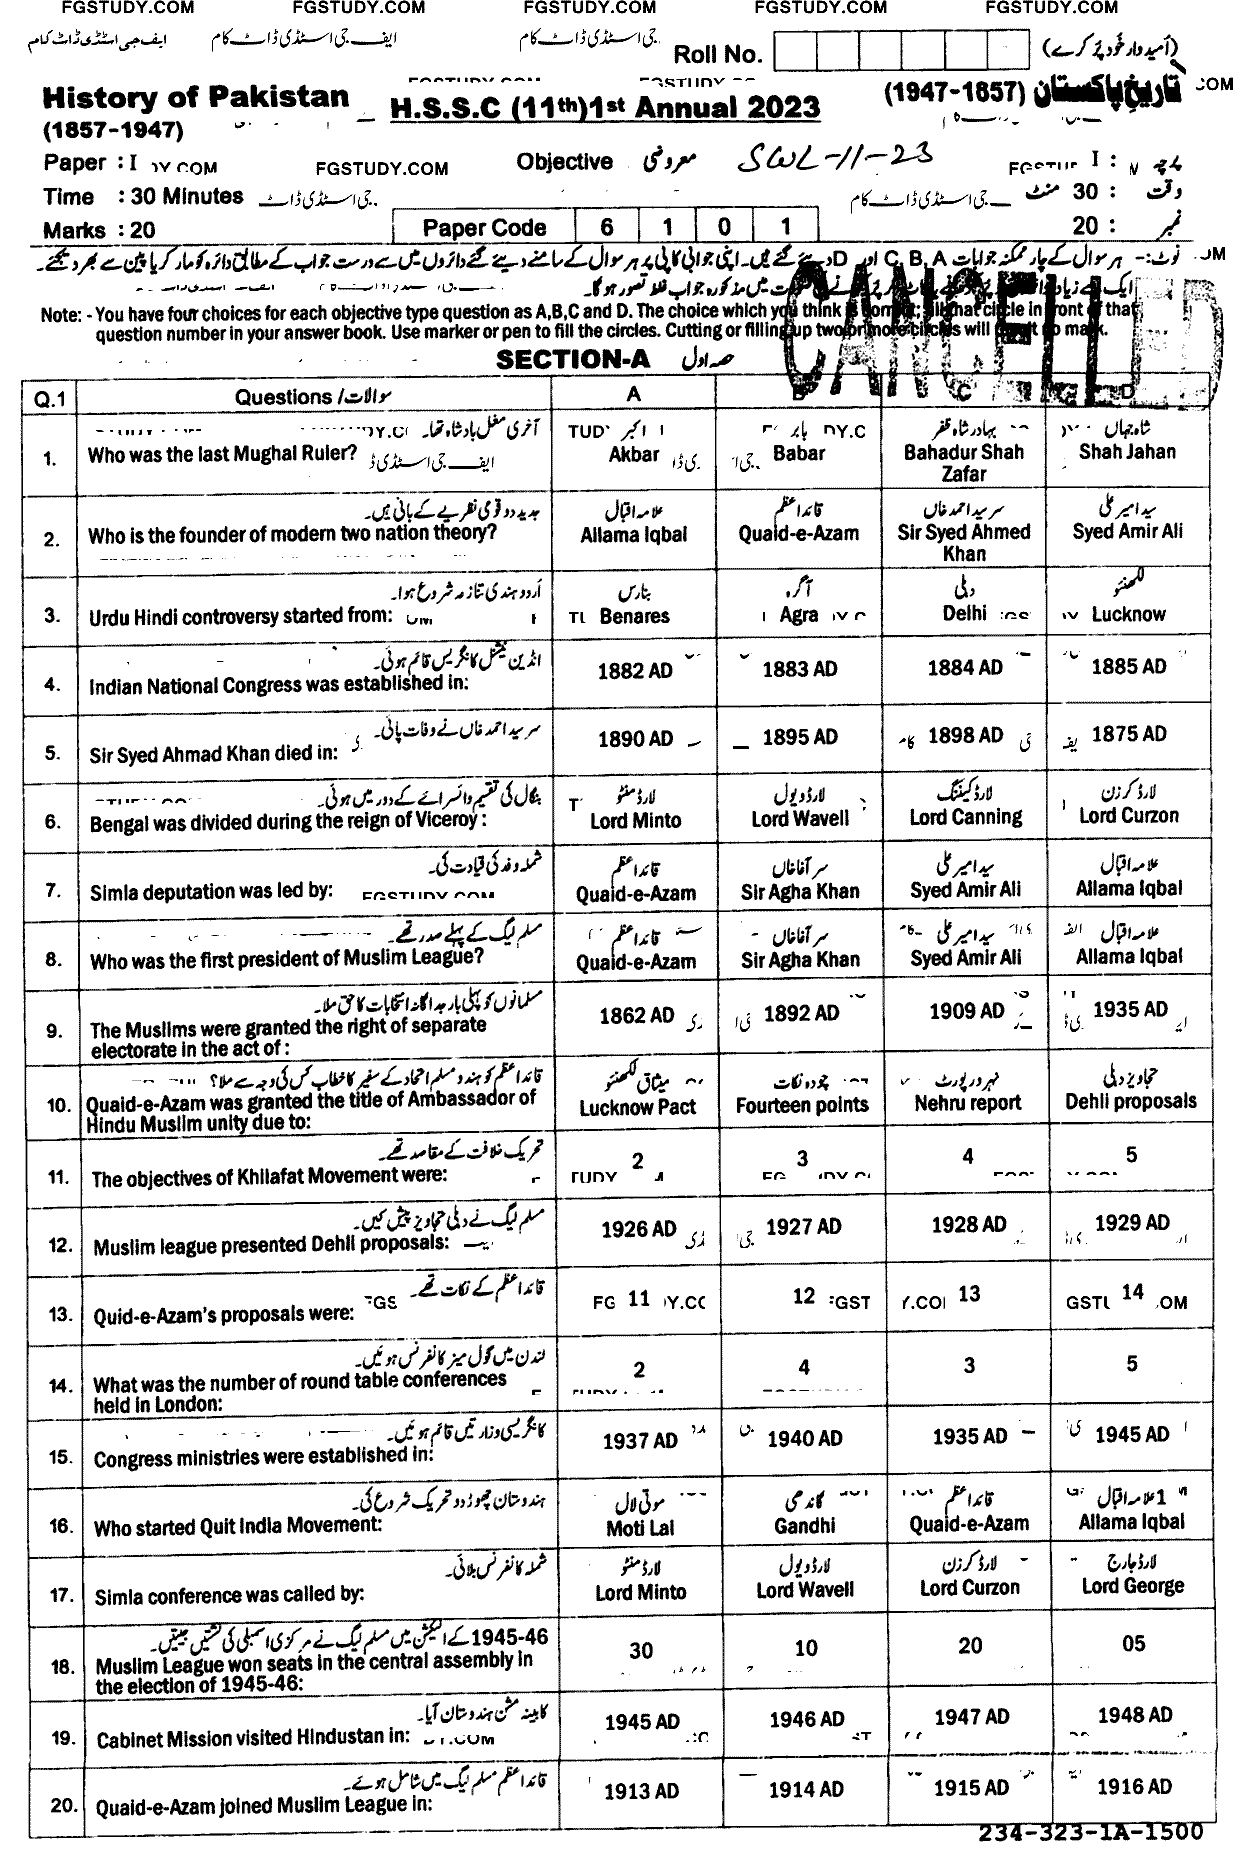 FGSTUDY.COM FGSTUDY.COM FGSTUDY.COM FGSTUDY.COM FGSTUDY.COM
ایف جی اسٹڈی ڈاٹ کام ایف جی اسٹڈی ڈاٹ کام جی اسٹڈی ڈاٹ کام
Roll No. (امیدوار خود پُر کرے)
History of Pakistan H.S.S.C (11th)1st Annual 2023 تاریخ پاکستان (1857-1947)
(1857-1947)
Paper : I FGSTUDY.COM Objective معروضی SWL-11-23 پرچہ : I
Time : 30 Minutes وقت : 30 منٹ
Marks : 20 Paper Code 6 1 0 1 نمبر : 20
نوٹ:- ہر سوال کے چار ممکنہ جوابات A، B، C اور D دیئے گئے ہیں۔ اپنی جوابی کاپی پر ہر سوال کے سامنے دیئے گئے دائروں میں سے درست جواب کے مطابق دائرہ کو مارکر یا پین سے بھر دیجئے۔
ایک سے زیادہ میں مذکورہ جواب غلط تصور ہوگا۔
CANCELLED
Note: - You have four choices for each objective type question as A,B,C and D. The choice which you think is correct; fill that circle in front of that
question number in your answer book. Use marker or pen to fill the circles. Cutting or filling up two or more circles will result no mark.
SECTION-A حصہ اول
Q.1 Questions / سوالات A B C D
آخری مغل بادشاہ تھا۔ اکبر بابر بہادر شاہ ظفر شاہ جہاں
1. Who was the last Mughal Ruler? Akbar Babar Bahadur Shah Zafar Shah Jahan
جدید دو قومی نظریے کے بانی ہیں۔ علامہ اقبال قائداعظم سر سید احمد خاں سید امیر علی
2. Who is the founder of modern two nation theory? Allama Iqbal Quaid-e-Azam Sir Syed Ahmed Khan Syed Amir Ali
اُردو ہندی تنازعہ شروع ہوا۔ بنارس آگرہ دہلی لکھنؤ
3. Urdu Hindi controversy started from: Benares Agra Delhi Lucknow
انڈین نیشنل کانگریس قائم ہوئی۔
4. Indian National Congress was established in: 1882 AD 1883 AD 1884 AD 1885 AD
سر سید احمد خاں نے وفات پائی۔
5. Sir Syed Ahmad Khan died in: 1890 AD 1895 AD 1898 AD 1875 AD
بنگال کی تقسیم وائسرائے کے دور میں ہوئی۔ لارڈ منٹو لارڈ ویول لارڈ کیننگ لارڈ کرزن
6. Bengal was divided during the reign of Viceroy : Lord Minto Lord Wavell Lord Canning Lord Curzon
شملہ وفد کی قیادت کی۔ قائداعظم سر آغا خاں سید امیر علی علامہ اقبال
7. Simla deputation was led by: Quaid-e-Azam Sir Agha Khan Syed Amir Ali Allama Iqbal
مسلم لیگ کے پہلے صدر تھے۔ قائداعظم سر آغا خاں سید امیر علی علامہ اقبال
8. Who was the first president of Muslim League? Quaid-e-Azam Sir Agha Khan Syed Amir Ali Allama Iqbal
مسلمانوں کو پہلی بار جداگانہ انتخابات کا حق ملا۔
9. The Muslims were granted the right of separate
electorate in the act of : 1862 AD 1892 AD 1909 AD 1935 AD
قائداعظم کو ہندو مسلم اتحاد کے سفیر کا خطاب کس کی وجہ سے ملا؟ میثاق لکھنؤ چودہ نکات نہرو رپورٹ تجاویز دہلی
10. Quaid-e-Azam was granted the title of Ambassador of
Hindu Muslim unity due to: Lucknow Pact Fourteen points Nehru report Dehli proposals
تحریک خلافت کے مقاصد تھے۔
11. The objectives of Khilafat Movement were: 2 3 4 5
مسلم لیگ نے دہلی تجاویز پیش کیں۔
12. Muslim league presented Dehli proposals: 1926 AD 1927 AD 1928 AD 1929 AD
قائداعظم کے نکات تھے۔
13. Quid-e-Azam's proposals were: 11 12 13 14
لندن میں گول میز کانفرنس ہوئیں۔
14. What was the number of round table conferences
held in London: 2 4 3 5
کانگریسی وزارتیں قائم ہوئیں۔
15. Congress ministries were established in: 1937 AD 1940 AD 1935 AD 1945 AD
ہندوستان چھوڑ دو تحریک شروع کی۔ موتی لال گاندھی قائداعظم علامہ اقبال
16. Who started Quit India Movement: Moti Lal Gandhi Quaid-e-Azam Allama Iqbal
شملہ کانفرنس بلائی۔ لارڈ منٹو لارڈ ویول لارڈ کرزن لارڈ جارج
17. Simla conference was called by: Lord Minto Lord Wavell Lord Curzon Lord George
1945-46 کے الیکشن میں مسلم لیگ نے مرکزی اسمبلی کی نشستیں جیتیں۔
18. Muslim League won seats in the central assembly in
the election of 1945-46: 30 10 20 05
کابینہ مشن ہندوستان آیا۔
19. Cabinet Mission visited Hindustan in: 1945 AD 1946 AD 1947 AD 1948 AD
قائداعظم مسلم لیگ میں شامل ہوئے۔
20. Quaid-e-Azam joined Muslim League in: 1913 AD 1914 AD 1915 AD 1916 AD
234-323-1A-1500